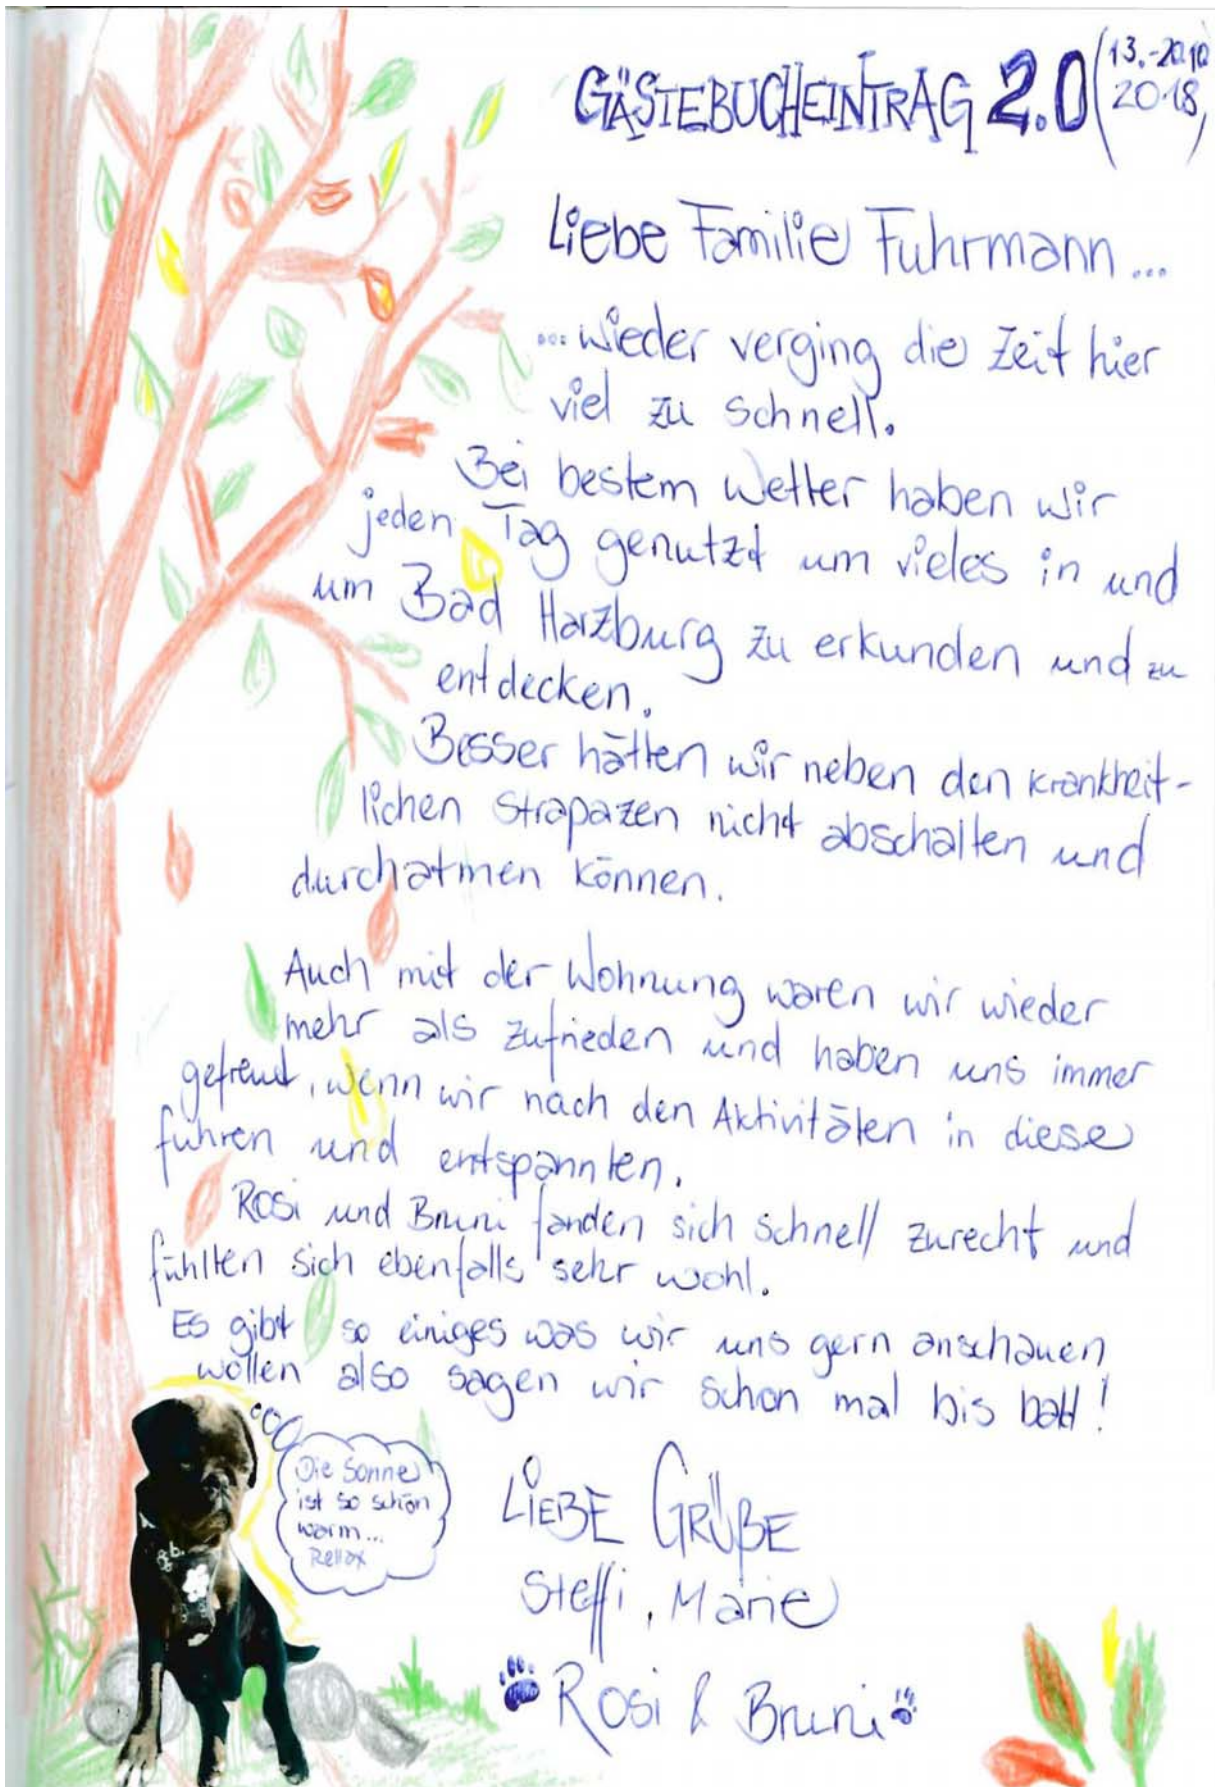 GÄSTEBUCHEINTRAG 2.0 (13.-20.10
2018)
Liebe Familie Fuhrmann...
... wieder verging die Zeit hier
viel zu schnell.
Bei bestem Wetter haben wir
jeden Tag genutzt um vieles in und
um Bad Harzburg zu erkunden und zu
entdecken.
Besser hätten wir neben den krankheit-
lichen Strapazen nicht abschalten und
durchatmen können.
Auch mit der Wohnung waren wir wieder
mehr als zufrieden und haben uns immer
gefreut, wenn wir nach den Aktivitäten in diese
fuhren und entspannten.
Rosi und Bruni fanden sich schnell zurecht und
fühlten sich ebenfalls sehr wohl.
Es gibt so einiges was wir uns gern anschauen
wollen also sagen wir schon mal bis bald!
Die Sonne
ist so schön
warm...
Relax
LIEBE GRÜßE
Steffi, Marie
Rosi & Bruni